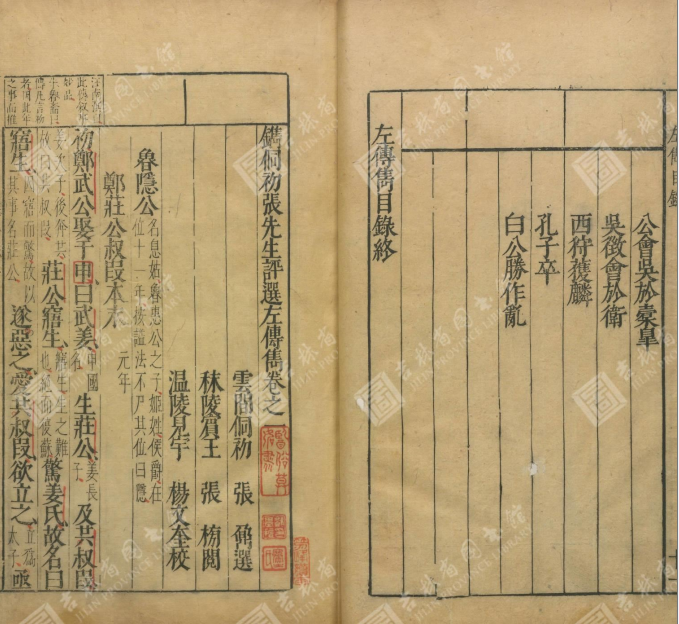 左傳目錄
公會吳於橐臯
吳徵會於衛
西狩獲麟
孔子卒
白公勝作亂
左傳雋目錄終
鐫侗初張先生評選左傳雋卷之
雲間侗初 張 鼐選
秣陵賓王 張 榜閱
温陵見宇 楊文奎校
魯隱公 名息姑魯惠公之子姬姓侯爵在位十一年按謚法不尸其位曰隱
鄭莊公叔段本末 元年
初鄭武公娶于申曰武姜 申國名 生莊公 姜長子 及共叔段
莊公寤生 驚姜氏故名曰
寤生 遂惡之愛共叔段欲立之 立為太子 亟
吉林省图书馆
JILIN PROVINCE